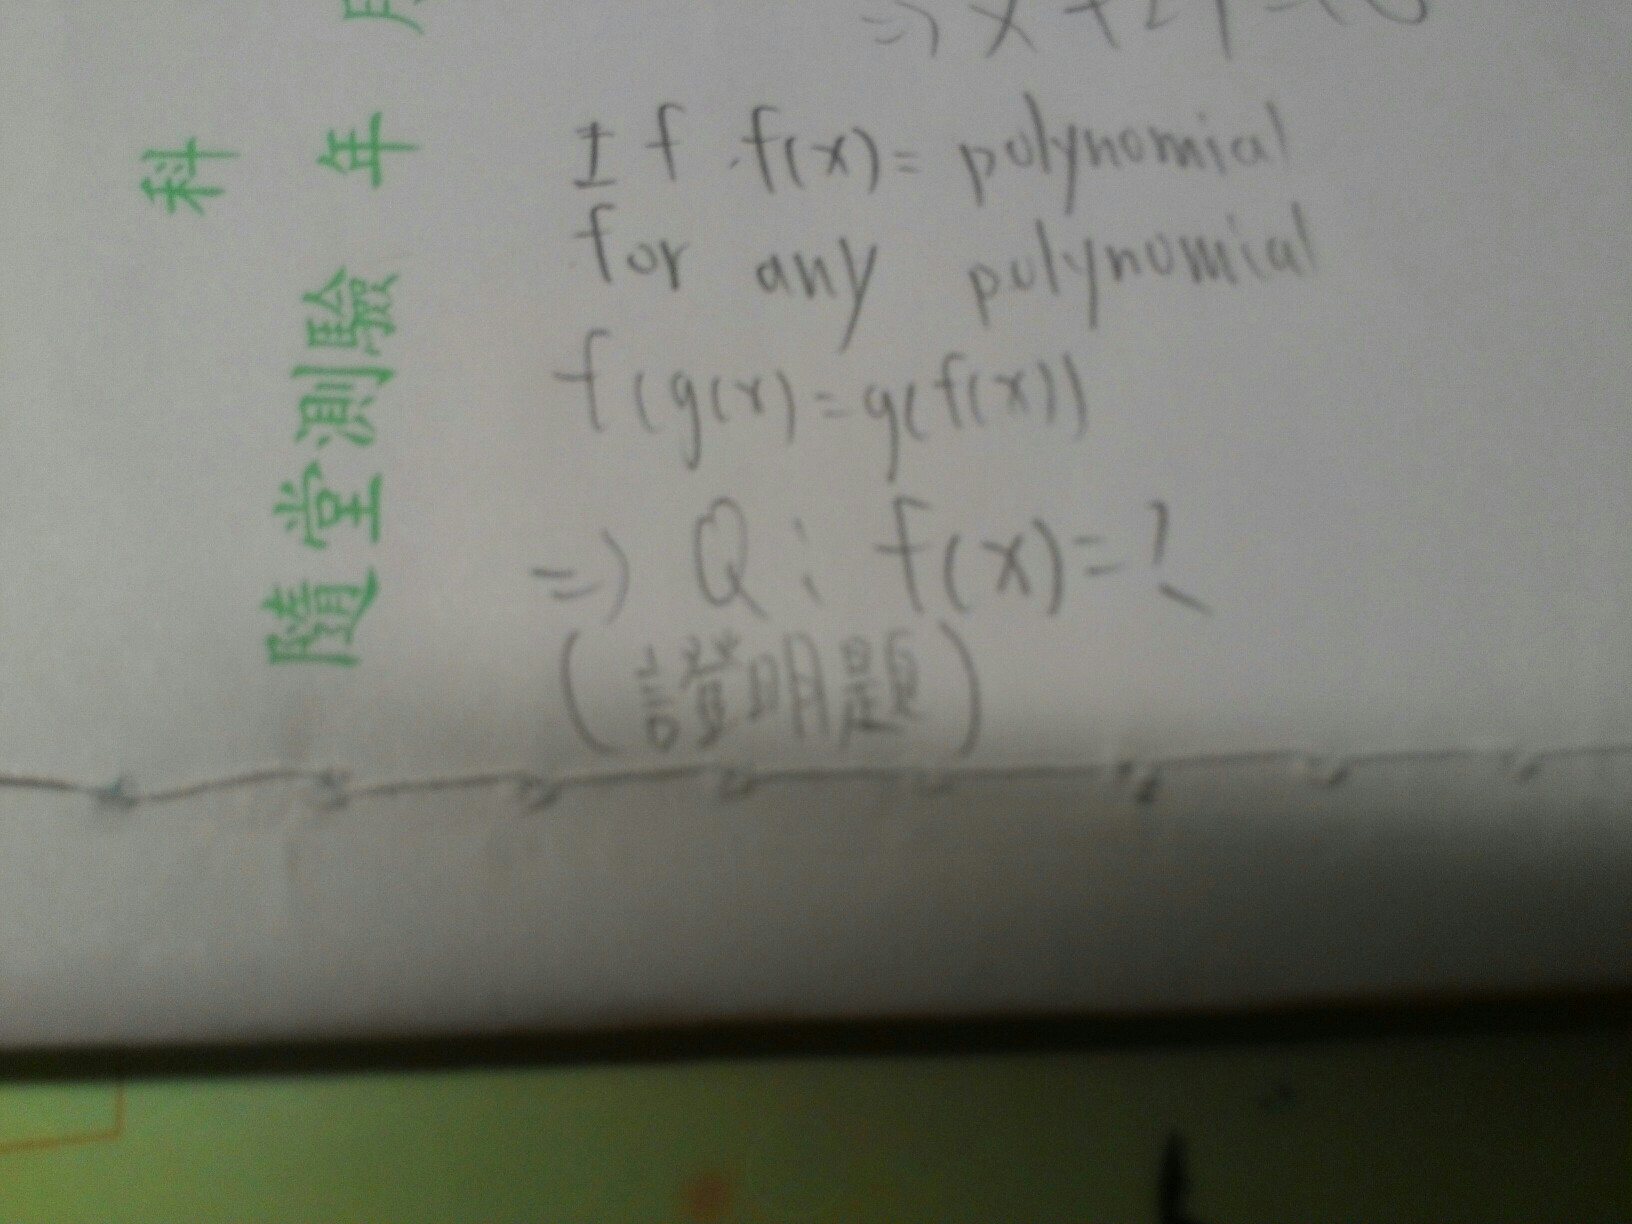 科 年 月
隨堂測驗
If f(x)= polynomial
for any polynomial
f(g(x)=g(f(x))
=> Q: f(x)=?
(證明題)